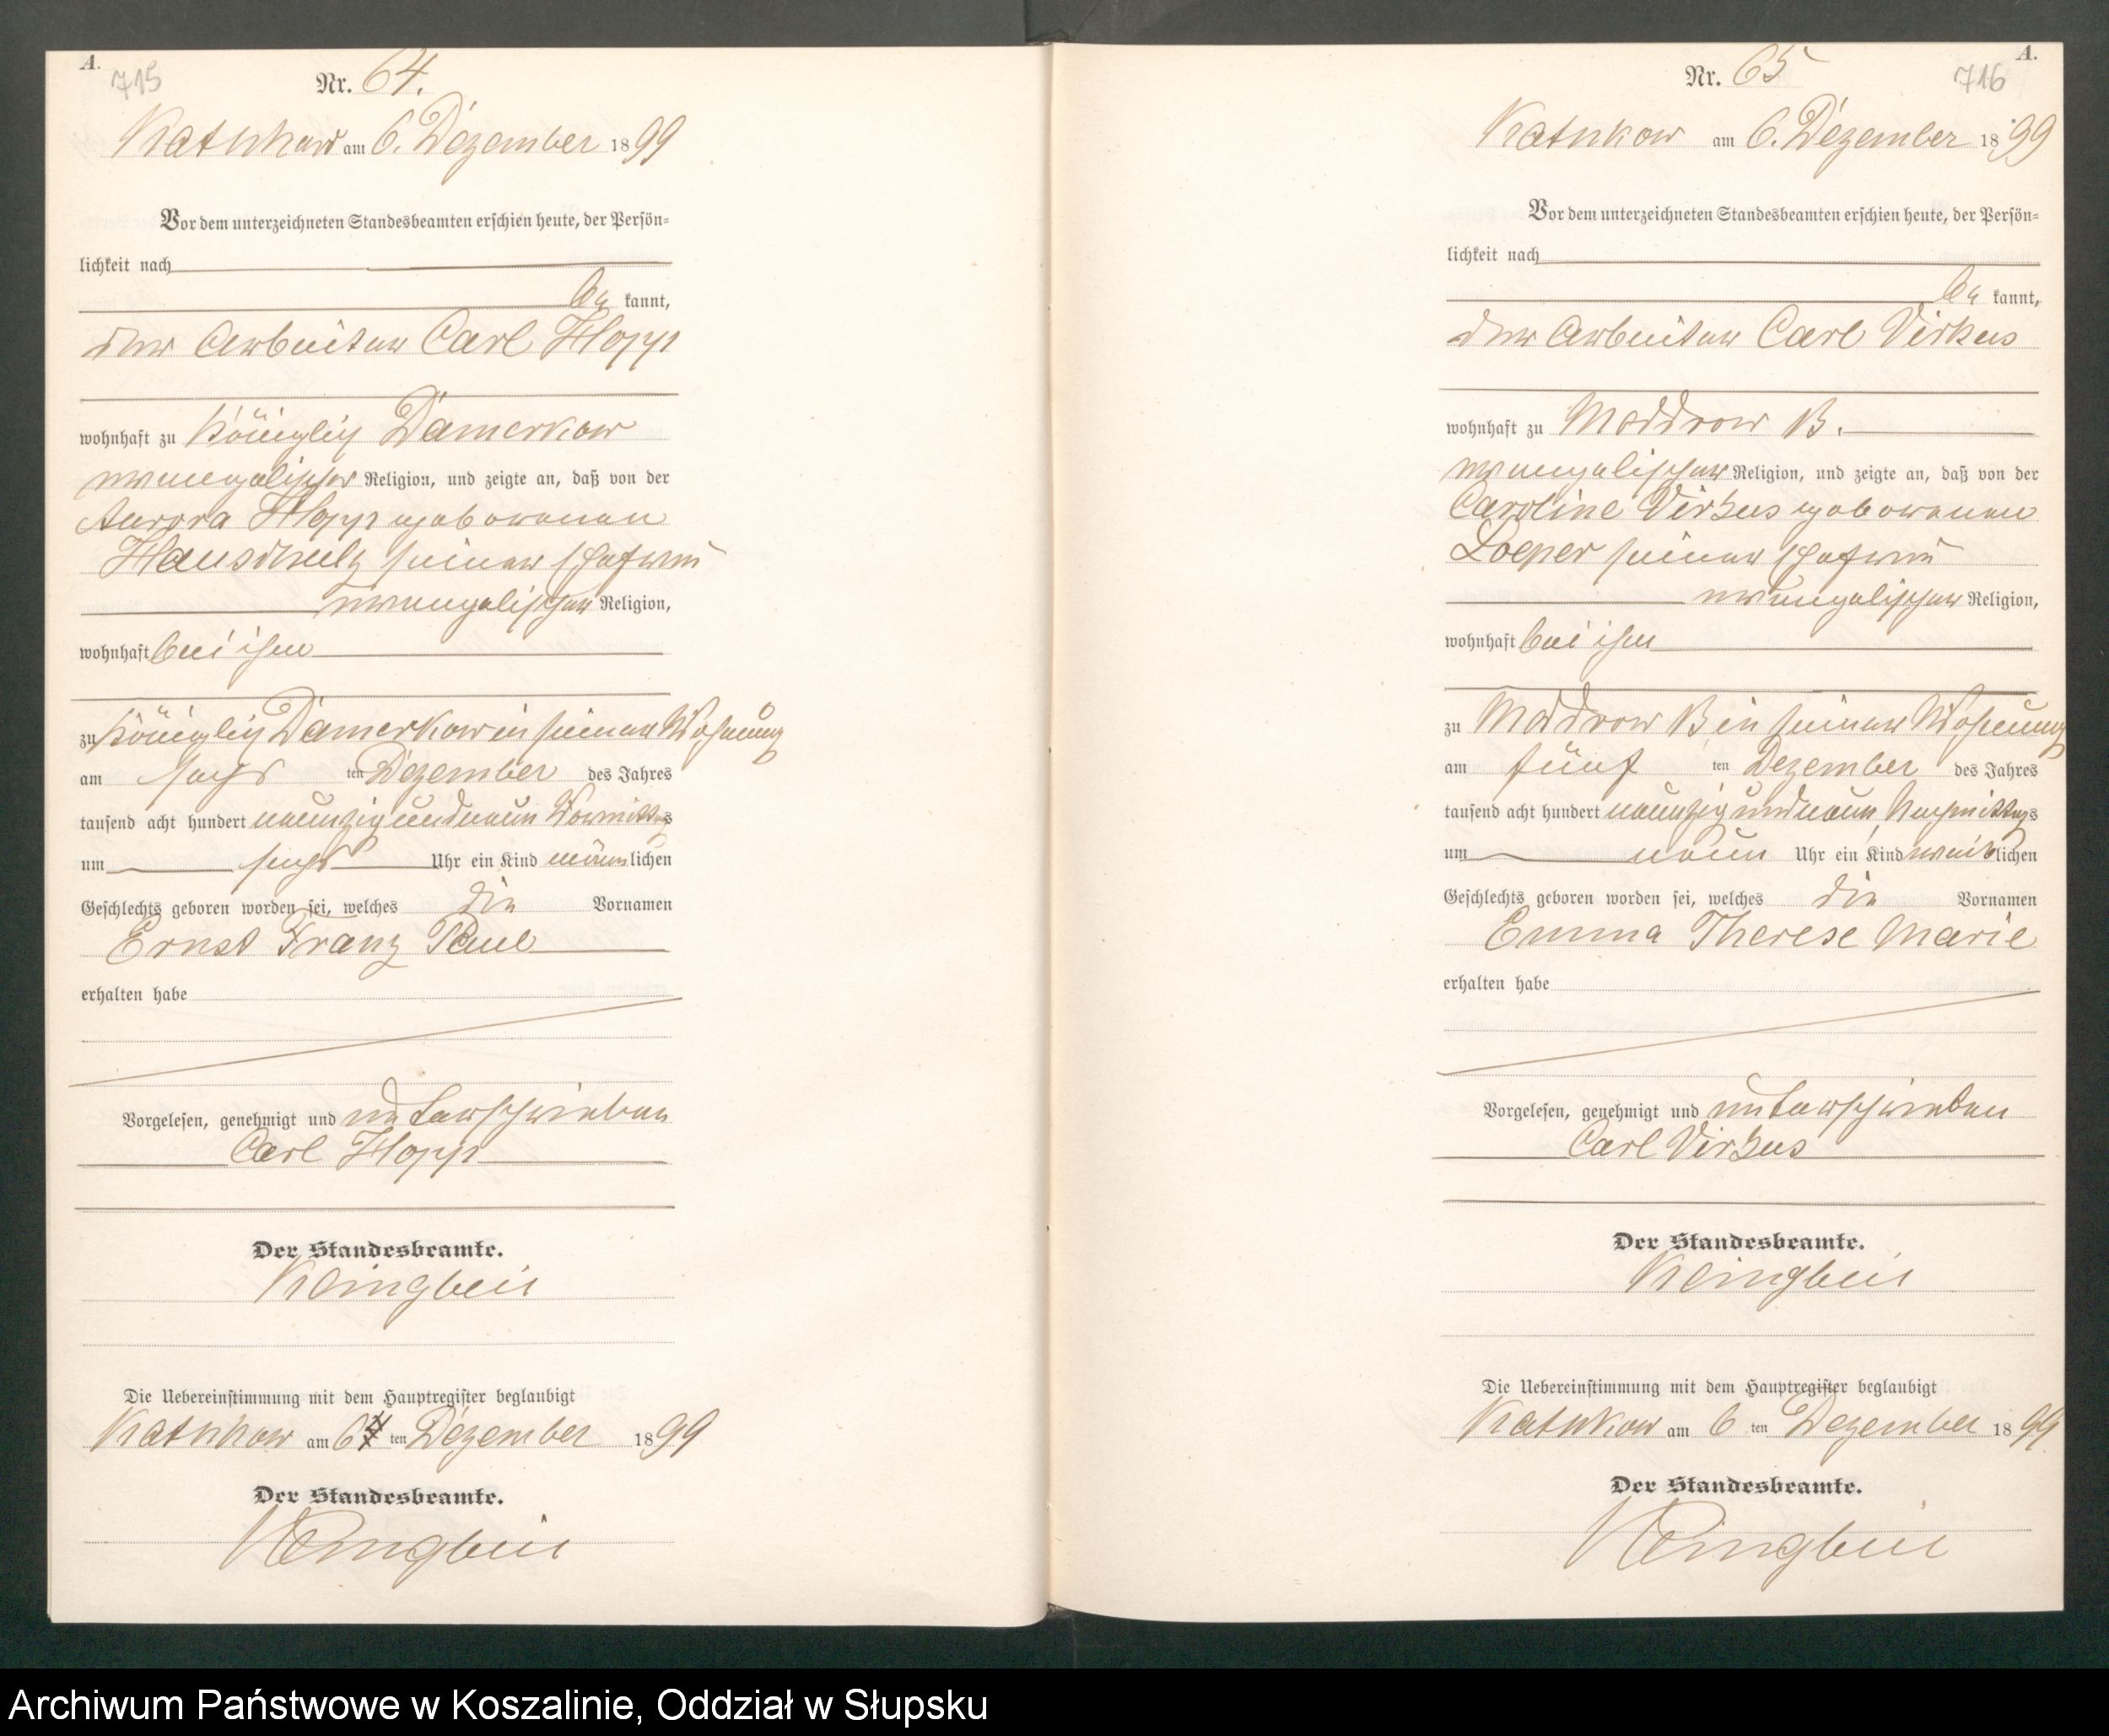 A.
715
Nr. 64.
Katkow am 6. Dezember 1899
Vor dem unterzeichneten Standesbeamten erschien heute, der Persön=
lichkeit nach
be kannt,
der Arbeiter Carl Hopp
wohnhaft zu Königlich Damerkow
evangelischer Religion, und zeigte an, daß von der
Aurora Hopp geborenen
seiner Ehefrau
evangelischer Religion,
wohnhaft bei ihm
zu Königlich Damerkow in seiner Wohnung
am sechs ten Dezember des Jahres
tausend acht hundert neunzig und neun Vormittags
um sechs Uhr ein Kind männlichen
Geschlechts geboren worden sei, welches die Vornamen
Ernst Franz Paul
erhalten habe
Vorgelesen, genehmigt und unterschrieben
Carl Hopp
Der Standesbeamte.
Klingbeil
Die Uebereinstimmung mit dem Hauptregister beglaubigt
Katkow am 6 ten Dezember 1899
Der Standesbeamte.
Klingbeil
A.
716
Nr. 65
Katkow am 6. Dezember 1899
Vor dem unterzeichneten Standesbeamten erschien heute, der Persön=
lichkeit nach
be kannt,
der Arbeiter Carl Virkus
wohnhaft zu Moddrow B.
evangelischer Religion, und zeigte an, daß von der
Caroline Virkus geborenen
Loeper seiner Ehefrau
evangelischer Religion,
wohnhaft bei ihm
zu Moddrow B in seiner Wohnung
am fünf ten Dezember des Jahres
tausend acht hundert neunzig und neun Nachmittags
um neun Uhr ein Kind weiblichen
Geschlechts geboren worden sei, welches die Vornamen
Emma Therese Marie
erhalten habe
Vorgelesen, genehmigt und unterschrieben
Carl Virkus
Der Standesbeamte.
Klingbeil
Die Uebereinstimmung mit dem Hauptregister beglaubigt
Katkow am 6 ten Dezember 1899
Der Standesbeamte.
Klingbeil
Archiwum Państwowe w Koszalinie, Oddział w Słupsku